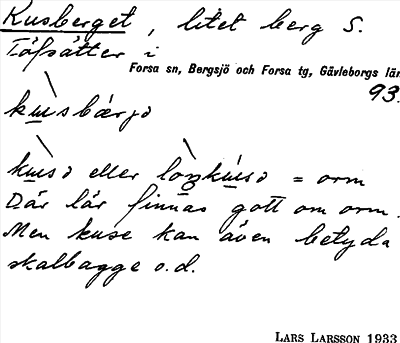 Kusberget, litet berg S.
Töfsätter i
Forsa sn, Bergsjö och Forsa tg, Gävleborgs län
93.
kusbærjə
kusə eller loŋkusə = orm
Där lär finnas gott om orm.
Men kuse kan även betyda
skalbagge o.d.
LARS LARSSON 1933